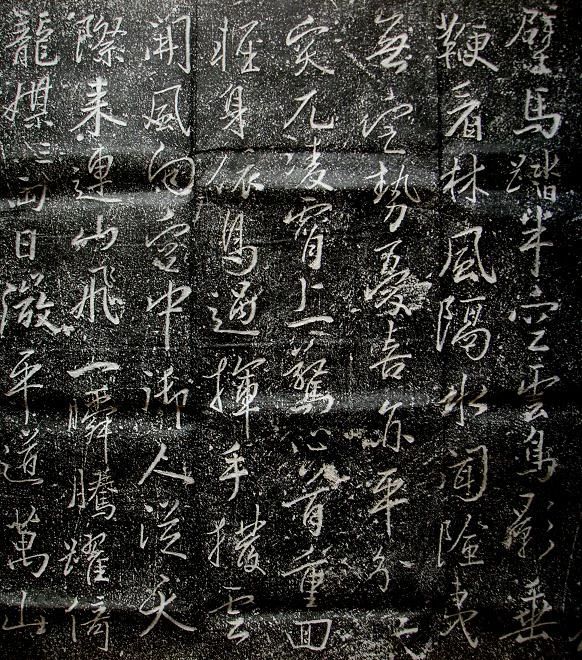 壁馬踏半空雲鳥影垂
鞭看林風隔水聞險夷
無定勢憂喜亦平分
突兀凌霄上驚心首重回
輕身依馬過揮手撥雲
開風向壺中御人從天
際來連山飛一瞬騰耀倚
龍媒三兩日激平道萬山